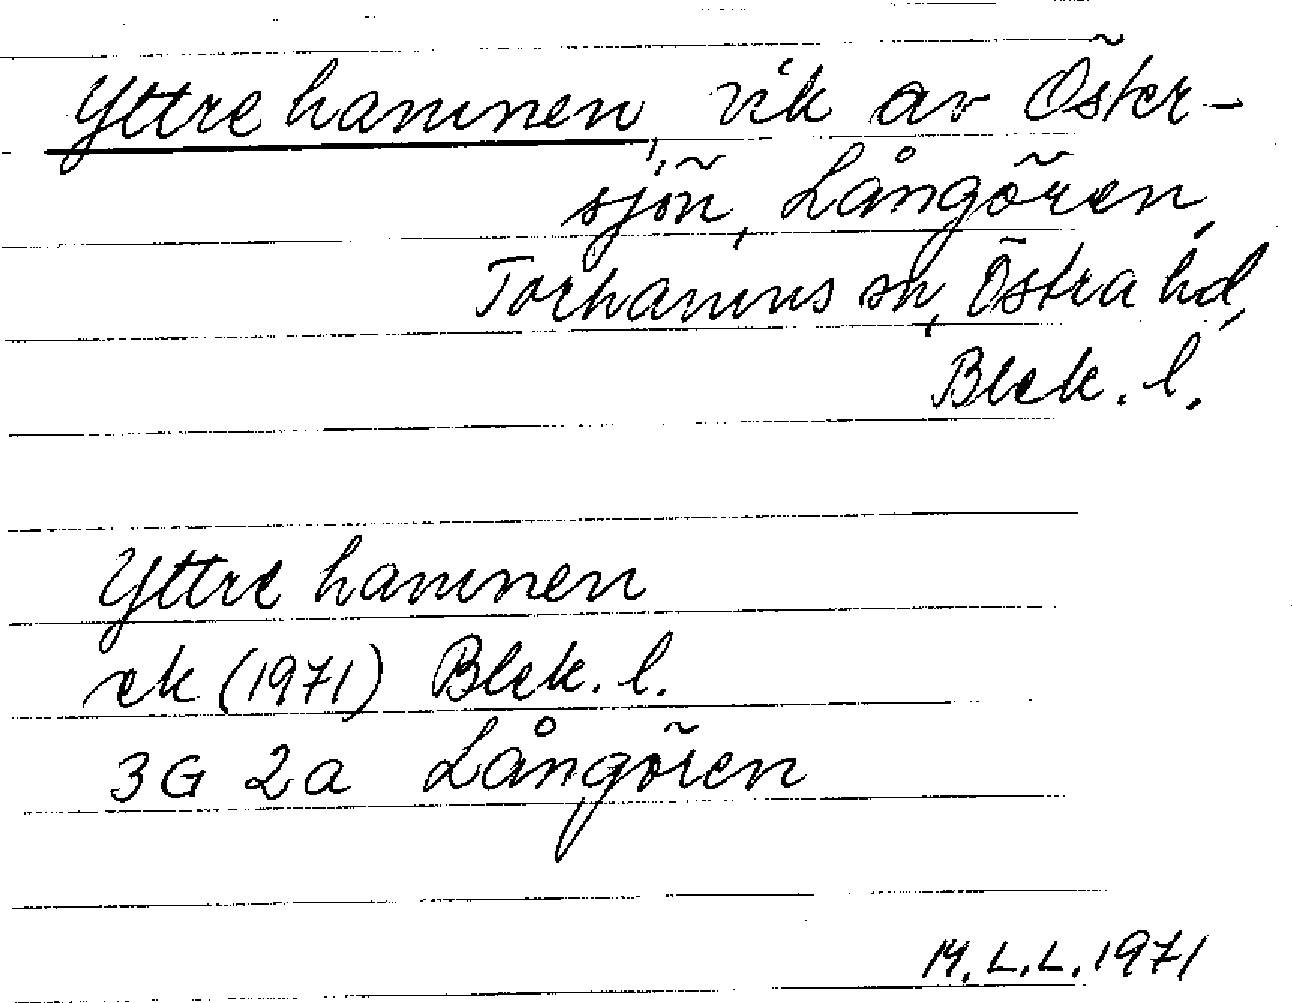 Yttre hamnen, vik av Öster-
sjön, Långören,
Torhamns sn, Östra hd,
Blek. l.
Yttre hamnen
ek (1971) Blek. l.
3G 2a Långören
M.L.L. 1971